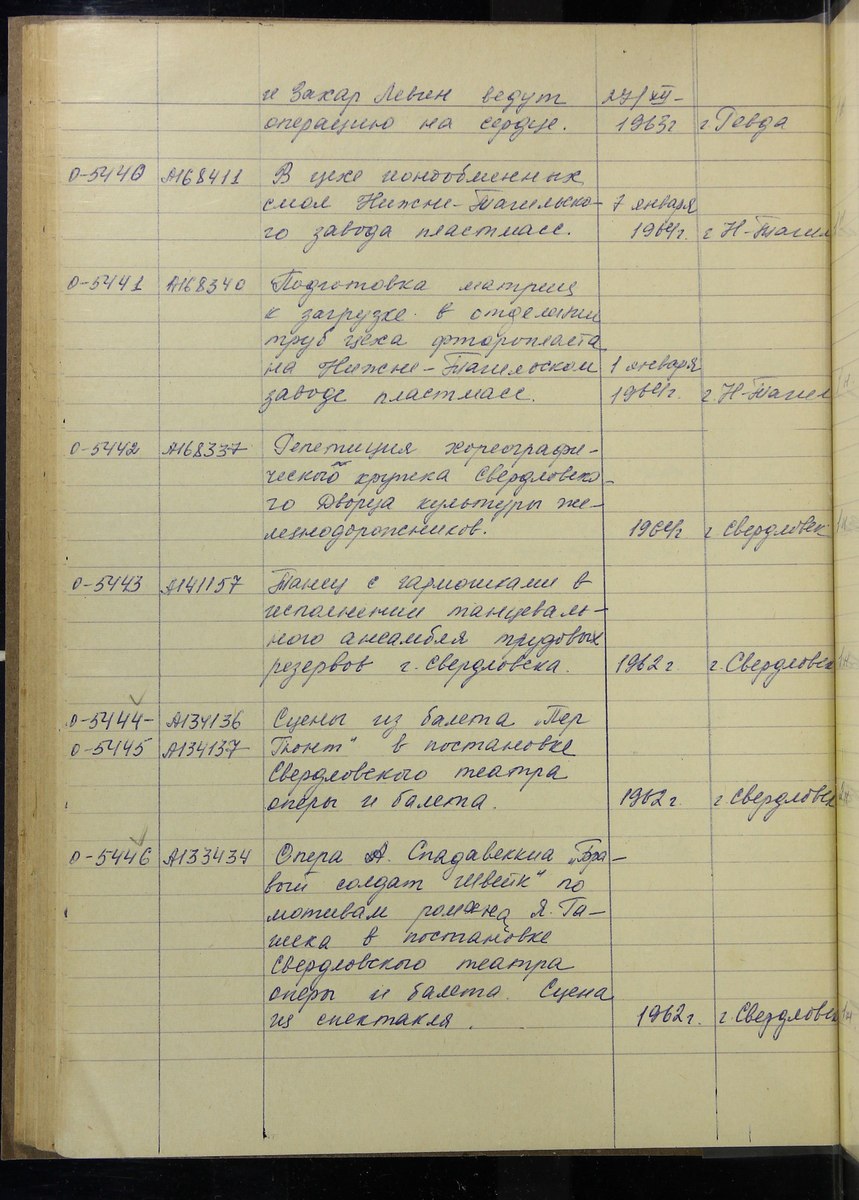 и Захар Левин ведут 27/XII-
операцию на сердце. 1963г г Ревда
0-5440 А168411 В цехе ионообменных
смол Нижне-Тагильско- 7 января
го завода пластмасс. 1964г. г Н-Тагил
0-5441 А168340 Подготовка матриц
к загрузке в отделении
труб цеха фторопласта
на Нижне-Тагильском 1 января
заводе пластмасс. 1964г. г Н-Тагил
0-5442 А168337 Репетиция хореографи-
ческого кружка Свердловско-
го Дворца культуры же-
лезнодорожников. 1964г г Свердловск
0-5443 А141157 Танец с гармошками в
исполнении танцеваль-
ного ансамбля трудовых
резервов г. Свердловска. 1962г г. Свердловск
0-5444- А134136 Сцены из балета „Пер
0-5445 А134137 Гюнт" в постановке
Свердловского театра
оперы и балета. 1962г. г Свердловск
0-5446 А133434 Опера А. Спадавеккиа „Бра-
вый солдат Швейк" по
мотивам романа Я. Га-
шека в постановке
Свердловского театра
оперы и балета. Сцена
из спектакля. 1962г. г. Свердловск